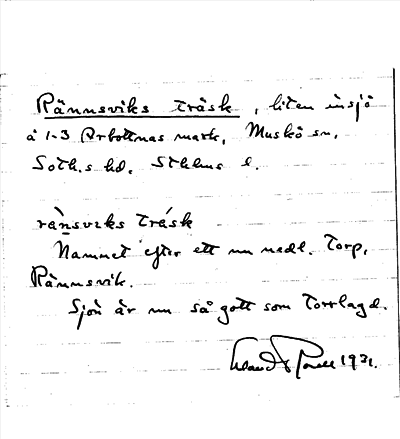 Rännsviks träsk, liten insjö
å 1-3 Arbottnas mark, Muskö sn,
Soth.s hd. Sthlms l.
rànsviks trä́sk
Namnet efter ett nu nedl. torp,
Rännsvik.
Sjön är nu så gott som torrlagd.
1931.